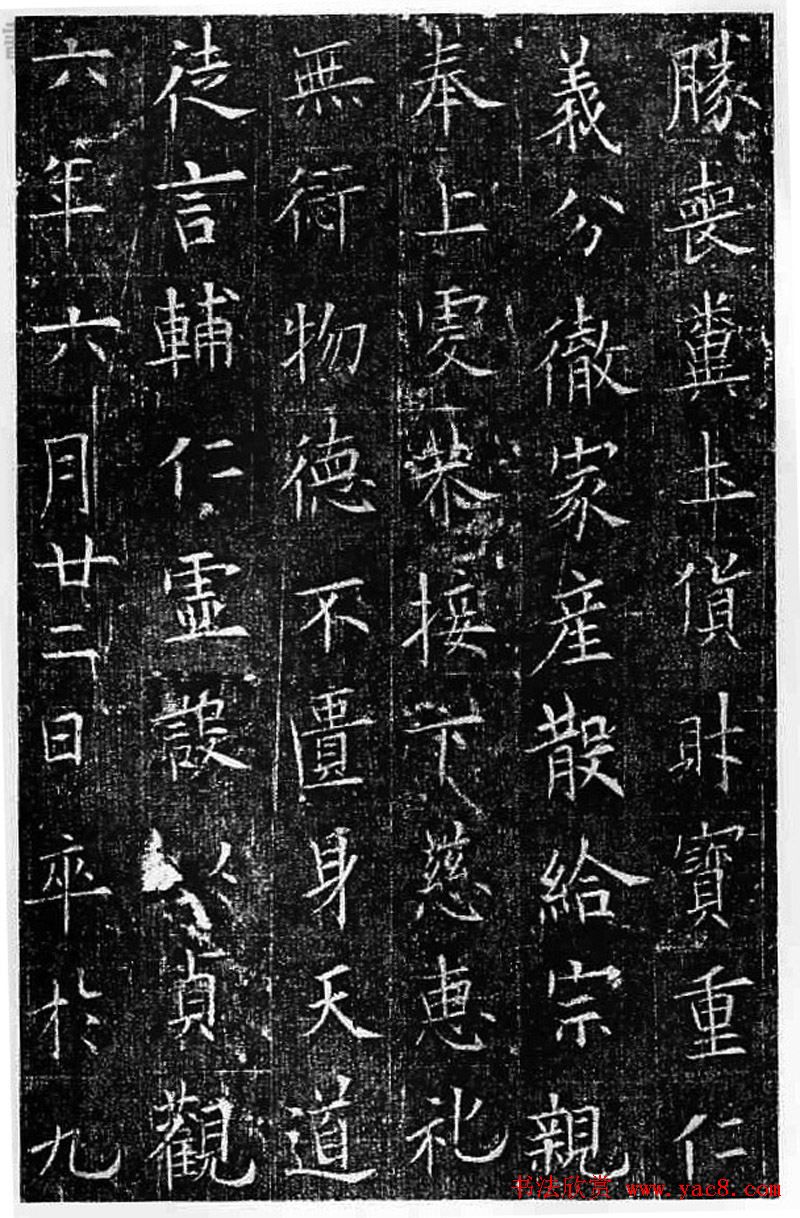 勝喪糞土貨財寶重仁
義分徹家産散給宗親
奉上虔恭接下慈惠礼
無衍物德不匱身天道
徒言輔仁虛設以貞觀
六年六月廿二日卒於九
书法欣赏 www.yac8.com